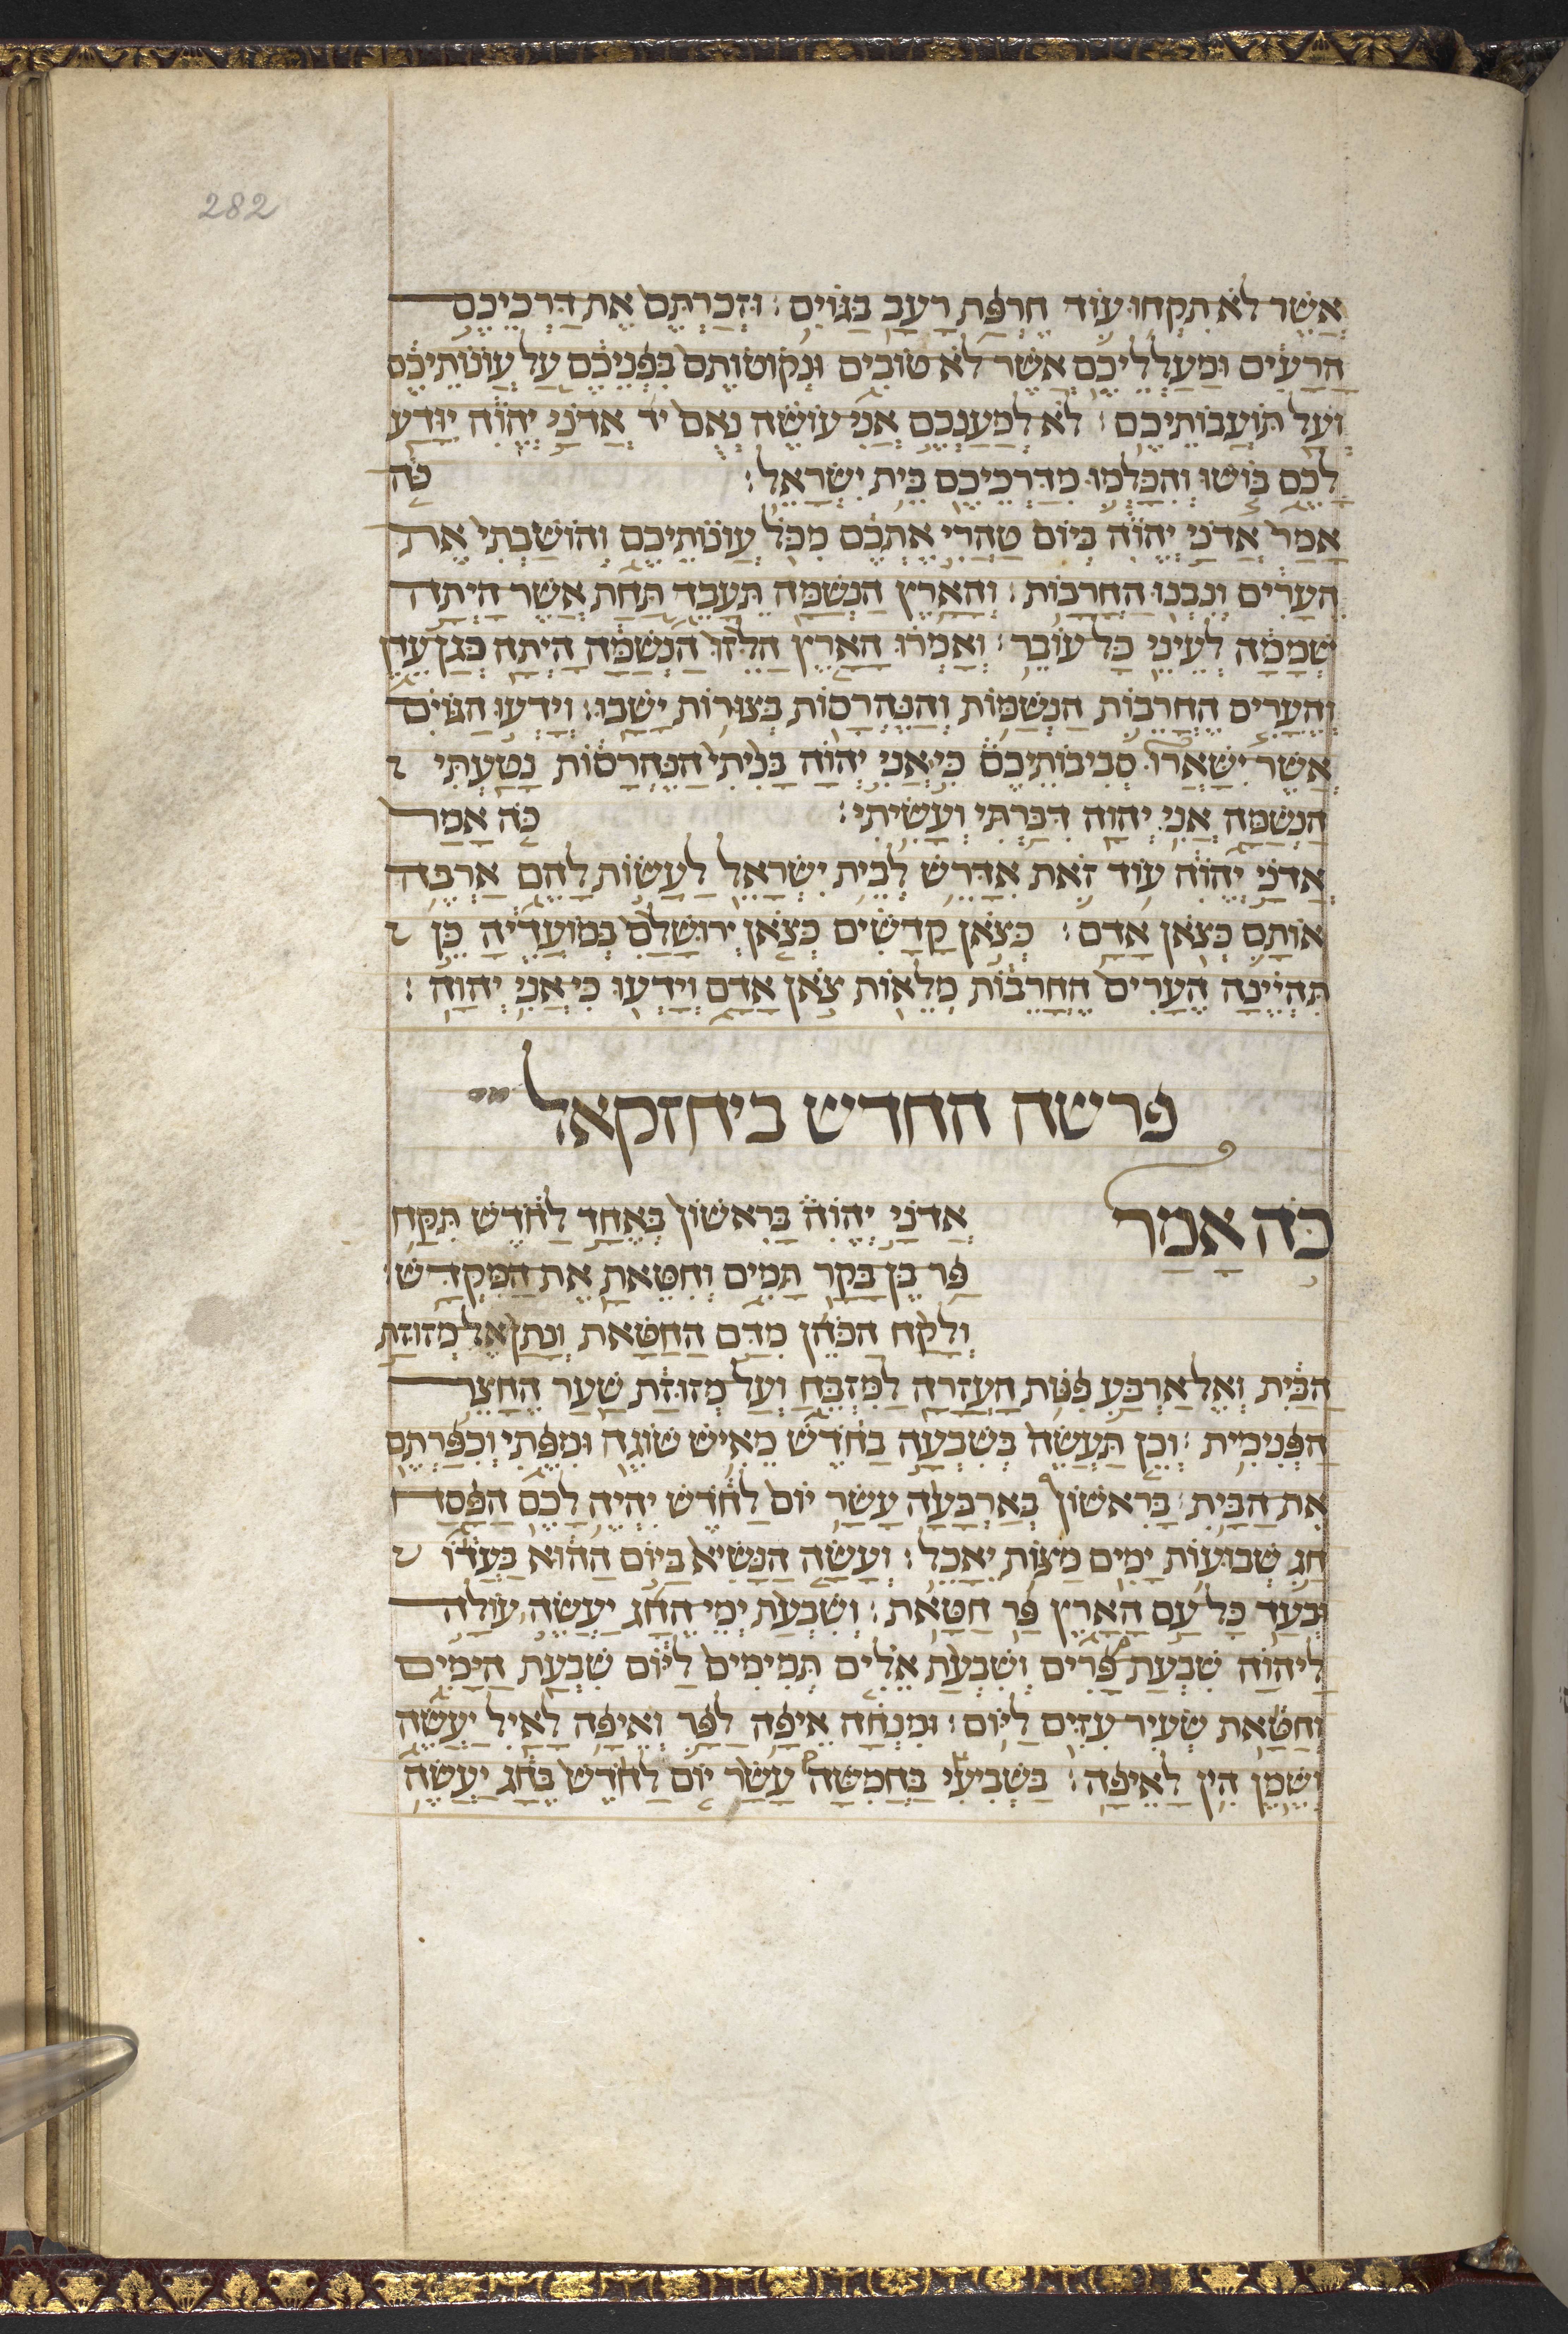 282
אֲשֶׁר לֹא תִקְחוּ עוֹד חֶרְפַּת רָעָב בַּגּוֹיִם׃ וּזְכַרְתֶּם אֶת דַּרְכֵיכֶם
הָרָעִים וּמַעַלְלֵיכֶם אֲשֶׁר לֹא טוֹבִים וּנְקוֹטוֹתֶם בִּפְנֵיכֶם עַל עֲוֹנוֹתֵיכֶם
וְעַל תּוֹעֲבוֹתֵיכֶם׃ לֹא לְמַעַנְכֶם אֲנִי עוֹשֶׂה נְאֻם יְ׳ אֲדֹנָי יְהֹוִה יִוָּדַע
לָכֶם בּוֹשׁוּ וְהִכָּלְמוּ מִדַּרְכֵיכֶם בֵּית יִשְׂרָאֵל׃ כֹּה
אָמַר אֲדֹנָי יְהֹוִה בְּיוֹם טַהֲרִי אֶתְכֶם מִכֹּל עֲוֹנוֹתֵיכֶם וְהוֹשַׁבְתִּי אֶת
הֶעָרִים וְנִבְנוּ הֶחֳרָבוֹת׃ וְהָאָרֶץ הַנְּשַׁמָּה תֵּעָבֵד תַּחַת אֲשֶׁר הָיְתָה
שְׁמָמָה לְעֵינֵי כָּל עוֹבֵר׃ וְאָמְרוּ הָאָרֶץ הַלֵּזוּ הַנְּשַׁמָּה הָיְתָה כְּגַן עֵדֶן
וְהֶעָרִים הֶחֳרֵבוֹת הַנְשַׁמּוֹת וְהַנֶּהֱרָסוֹת בְּצוּרוֹת יָשָׁבוּ׃ וְיָדְעוּ הַגּוֹיִם
אֲשֶׁר יִשָּׁאֲרוּ סְבִיבוֹתֵיכֶם כִּי אֲנִי יְהוָה בָּנִיתִי הַנֶּהֱרָסוֹת נָטַעְתִּי
הַנְּשַׁמָּה אֲנִי יְהוָה דִּבַּרְתִּי וְעָשִׂיתִי׃ כֹּה אָמַר
אֲדֹנָי יְהֹוִה עוֹד זֹאת אִדָּרֵשׁ לְבֵית יִשְׂרָאֵל לַעֲשׂוֹת לָהֶם אַרְבֶּה
אוֹתָם כַּצֹּאן אָדָם׃ כְּצֹאן קָדָשִׁים כְּצֹאן יְרוּשָׁלִַם בְּמוֹעֲדֶיהָ כֵּן
תִּהְיֶינָה הֶעָרִים הֶחֳרֵבוֹת מְלֵאוֹת צֹאן אָדָם וְיָדְעוּ כִּי אֲנִי יְהוָה׃
פרשה החדש ביחזקאל
כֹּה אָמַר אֲדֹנָי יְהֹוִה בָּרִאשׁוֹן בְּאֶחָד לַחֹדֶשׁ תִּקַּח
פַּר בֶּן בָּקָר תָּמִים וְחִטֵּאתָ אֶת הַמִּקְדָּשׁ׃
וְלָקַח הַכֹּהֵן מִדַּם הַחַטָּאת וְנָתַן אֶל מְזוּזַת
הַבַּיִת וְאֶל אַרְבַּע פִּנּוֹת הָעֲזָרָה לַמִּזְבֵּחַ וְעַל מְזוּזַת שַׁעַר הֶחָצֵר
הַפְּנִימִית׃ וְכֵן תַּעֲשֶׂה בְּשִׁבְעָה בַחֹדֶשׁ מֵאִישׁ שׁוֹגֶה וּמִפֶּתִי וְכִפַּרְתֶּם
אֶת הַבָּיִת׃ בָּרִאשׁוֹן בְּאַרְבָּעָה עָשָׂר יוֹם לַחֹדֶשׁ יִהְיֶה לָכֶם הַפָּסַח
חַג שְׁבוּעוֹת יָמִים מַצּוֹת יֵאָכֵל׃ וְעָשָׂה הַנָּשִׂיא בַּיּוֹם הַהוּא בַּעֲדוֹ
וּבְעַד כָּל עַם הָאָרֶץ פַּר חַטָּאת׃ וְשִׁבְעַת יְמֵי הֶחָג יַעֲשֶׂה עוֹלָה
לַיהוָה שִׁבְעַת פָּרִים וְשִׁבְעַת אֵלִים תְּמִימִים לַיּוֹם שִׁבְעַת הַיָּמִים
וְחַטָּאת שְׂעִיר עִזִּים לַיּוֹם׃ וּמִנְחָה אֵיפָה לַפָּר וְאֵיפָה לָאַיִל יַעֲשֶׂה
וְשֶׁמֶן הִין לָאֵיפָה׃ בַּשְּׁבִיעִי בַּחֲמִשָּׁה עָשָׂר יוֹם לַחֹדֶשׁ בֶּחָג יַעֲשֶׂה